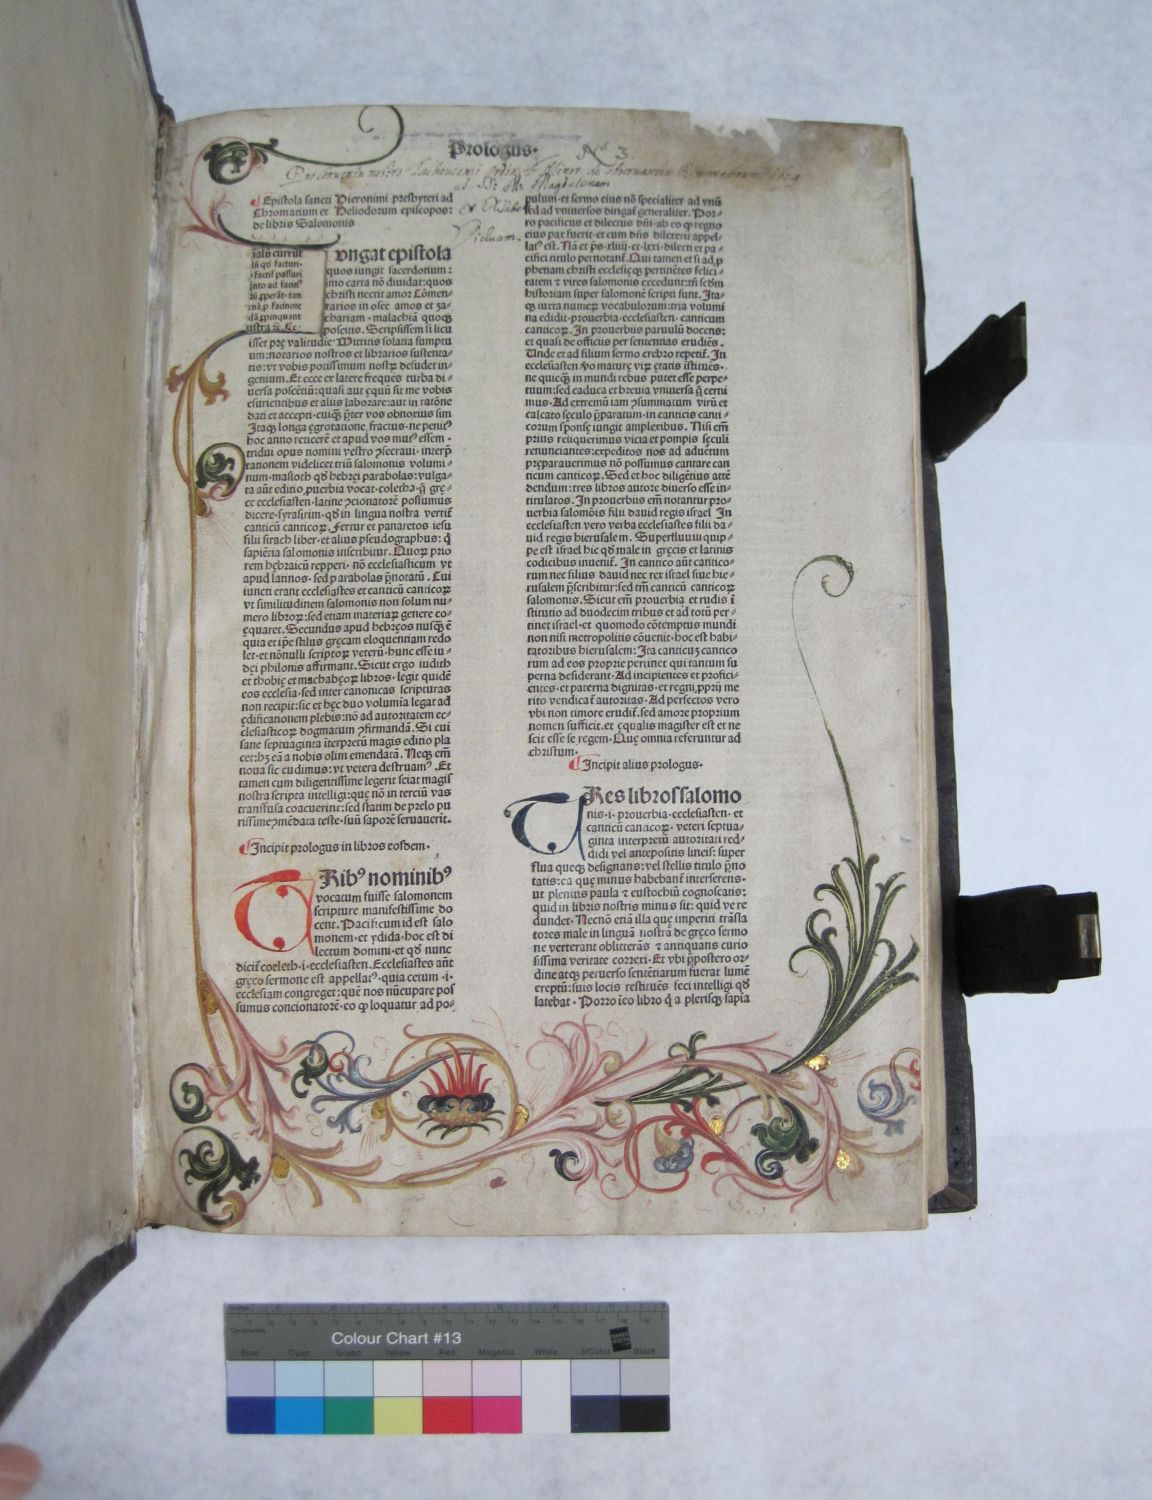 Prologus.
No. 3.
Pro conventu nostro Tachoviensi ordinis
ad St. M. Magdalenam
Epistola sancti Hieronimi presbyteri ad
Chromatium et Heliodorum episcopos:
de libris Salomonis
vngat epistola
quos iungit sacerdotium:
imo carta nō diuidat:quos
christi nectit amor Cōmen⸗
tarios in osee amos et za⸗
chariam · malachiā quoqꝫ
poscitis. Scripsissem si licu
isset pre valitudie· Mittitis solatia sumptu
um:notarios nostros et librarios sustenta⸗
tis:vt vobis potissimum nostꝝ desudet in⸗
genium. Et ecce ex latere freques turba di⸗
uersa poscētiū:quasi aut equū sit me vobis
esurientibus et aliis laborare:aut in ratōne
dati et accepti·cuiqꝫ p̄ter vos obnorius sim
Itaqꝫ longa egrotatione fractus·ne penitꝰ
hoc anno reticerē et apud vos mutꝰ essem·
tridui opus nomini vestro ꝯsecraui·interp̄
tationem videlicet triū salomonis volumi⸗
num·masloth qd̄ hebrei parabolas:vulga⸗
ta aūt editio ꝓuerbia vocat·coleth·q̄ gre⸗
ce ecclesiasten·latine ꝯcionatorē possumus
dicere·syrasirim·qd̄ in lingua nostra vertit̄
canticū canticoꝝ. Fertur et panaretos iesu
filii sirach liber·et alius pseudographus:q̄
sapiētia salomonis inscribitur. Quoꝝ prio
rem hebraicū repperi·nō ecclesiasticum vt
apud latinos·sed parabolas p̄notatū. Cui
iuncti erant ecclesiastes et canticū canticoꝝ
vt similitudinem salomonis non solum nu⸗
mero libroꝝ:sed etiam materiaꝝ genere co⸗
equaret. Secundus apud hebreos nusqꝫ ē
quia et ip̄e stilus grecam eloquentiam redo
let·et nōnulli scriptoꝝ veterū·hunc esse iu⸗
dei philonis affirmant. Sicut ergo iudith
et thobie et machabeoꝝ libros·legit quidē
eos ecclesia·sed inter canonicas scripturas
non recipit:sic et hec duo volumia legat ad
edificationem plebis:nō ad autoritatem ec⸗
clesiasticoꝝ dogmatum ꝯfirmandā. Si cui
sane septuaginta iterpretū magis editio pla
cet:hꝫ eā a nobis olim emendatā. Neqꝫ em̄
noua sic cudimus:vt vetera destruamꝰ. Et
tamen cum diligentissime legerit sciat magis
nostra scripta intelligi:que nō in terciū vas
transfusa coacuerint:sed statim de prelo pu
rissime ꝯmēdata teste·suū saporē seruauerit.
Incipit prologus in libros eosdem·
Ribꝰ nominibꝰ
vocatum fuisse salomonem
scripture manifestissime do
cent. Pacificum id est salo
monem·et ydida·hoc est di
lectum domini·et qd̄ nunc
dicit̄ coeleth·i·ecclesiasten. Ecclesiastes aūt
greco sermone est appellatꝰ·quia cetum·i·
ecclesiam congreget:quē nos nūcupare pos
sumus concionatorē·eo ꝙ loquatur ad po⸗
pulum·et sermo eius nō specialiter ad vnū
sed ad vniuersos dirigat̄ generaliter. Por⸗
ro pacificus et dilectus dn̄i·ab eo ꝙ regno
eius pax fuerit·et eum dn̄s dilexerit appel⸗
latꝰ est. Nā et ps·xliiij·et·lxxi·dilecti et pa⸗
cifici titulo pernotant̄. Qui tamen et si ad ꝓ
phetiam christi ecclesieqꝫ pertinētes felici⸗
tatem ⁊ vires salomonis excedunt:tn̄ scd̄m
historiam super salomonē scripti sunt. Ita⸗
qꝫ iuxta numeꝝ vocabulorum:tria volumi
na edidit·prouerbia·ecclesiasten·canticum
canticoꝝ. In prouerbiis paruulū docens:
et quasi de officiis per sententias erudiēs.
Unde et ad filium sermo crebro repetit̄. In
ecclesiasten vo mature viꝝ etatis istituēs·
ne quicqꝫ in mundi rebus putet esse perpe⸗
tuum:sed caduca et breuia vniuersa q̄ cerni
mus·Ad extremū iam ꝯsummatum virū et
calcato seculo p̄paratum·in canticis canti⸗
corum sponse iungit amplexibus. Nisi em̄
prius reliquerimus vicia et pompis seculi
renunciantes:expeditos nos ad aduētum
preparauerimus nō possumus cantare can
ticum canticoꝝ. Sed et hoc diligētius attē
dendum:tres libros autore diuerso esse in⸗
titulatos. In prouerbiis em̄ notantur pro⸗
uerbia salomōis filii dauid regis israel In
ecclesiasten vero verba ecclesiastes filii da⸗
uid regis hierusalem. Superfluum quip⸗
pe est israel hic qd̄ male in grecis et latinis
codicibus inuenit̄. In cantico aūt cantico⸗
rum nec filius dauid nec rex israel siue hie⸗
rusalem p̄scribitur:sed tm̄ canticū canticoꝝ
salomonis. Sicut em̄ prouerbia et rudis ī
stitutio ad duodecim tribus et ad totū per⸗
tinet israel·et quomodo cōtemptus mundi
non nisi metropolitis cōuenit·hoc est habi⸗
tatoribus hierusalem:Ita canticuꝫ cantico
rum ad eos proprie pertinet qui tantum su
perna desiderant·Ad incipientes et profici⸗
entes·et paterna dignitas·et regni ꝓprij me
rito vendicat̄ autoritas·Ad perfectos vero
vbi non timore erudit̄·sed amore proprium
nomen sufficit·et equalis magister est et ne
scit esse se regem. Que omnia referuntur ad
christum·
Incipit alius prologus·
Res libros salomo
nis·i·prouerbia·ecclesiasten·et
canticū canticoꝝ·veteri septua⸗
ginta interpretū autoritati red⸗
didi vel antepositis lineis:super
flua queqꝫ designans:vel stellis titulo p̄no
tatis:ea que minus habebant̄ interserens·
ut plenius paula ⁊ eustochiū cognoscatis:
quid in libris nostris minus sit: quid vere
dundet·Necnō etiā illa que imperiti trāsla
tores male in linguā nostrā de greco sermo
ne verterant oblitterās ⁊ antiquans curio
sissima veritate correxi·Et vbi p̄postero or⸗
dine atqꝫ peruerso sententiarum fuerat lumē
ereptū:suis locis restituēs feci intelligi qd̄
latebat·Porro īeo libro q̄ a plerisqꝫ sapia
Colour Chart #13
Inches
Centimetres
Blue Cyan Green Yellow Red Magenta White 3/Color Black